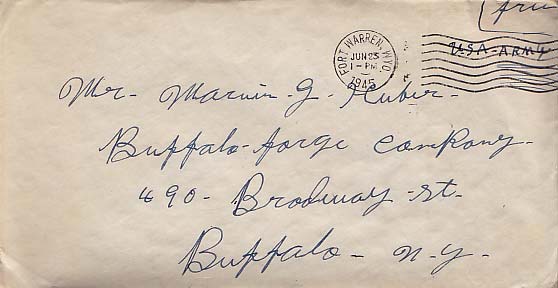 Free
USA-ARMY
FORT WARREN, WYO.
JUN 25
1-PM
1945
Mr- Marvin-J-Huber-
Buffalo-forge Company-
490- Brodway-st-
Buffalo- n-y-